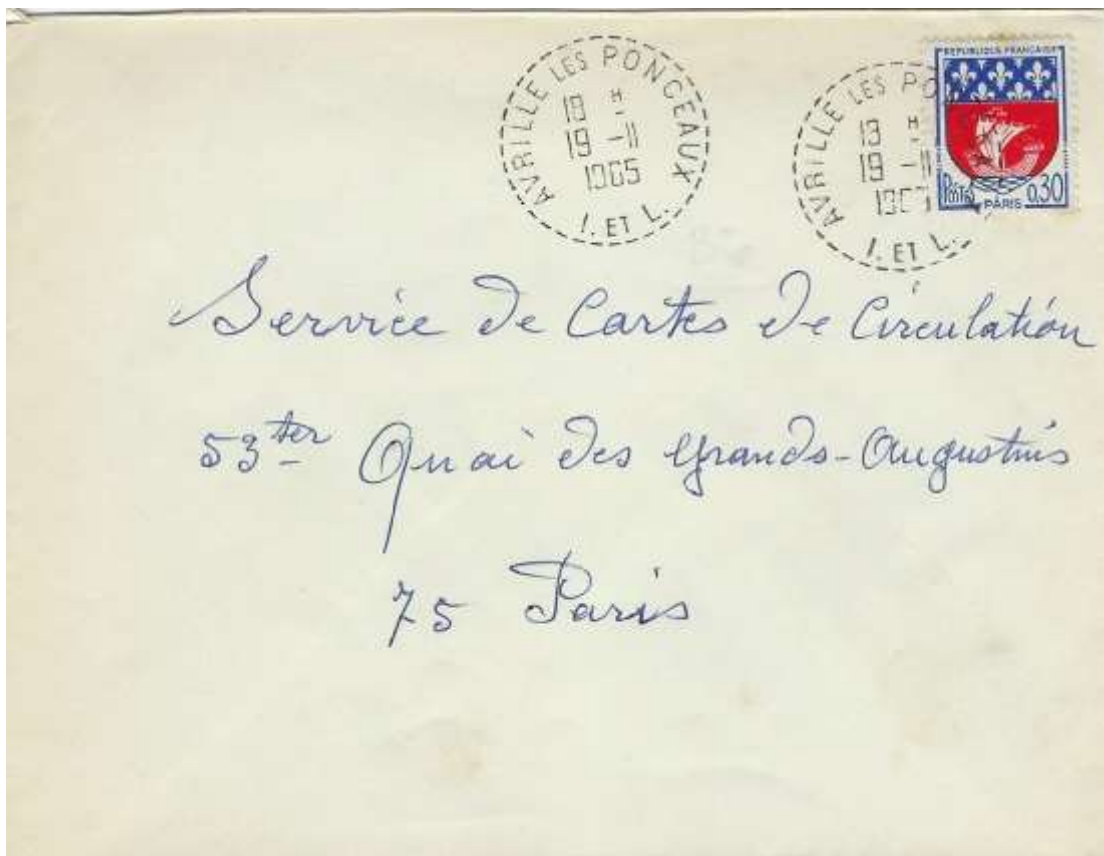 AVRILLE LES PONCEAUX
18 H
19 -11
1965
I. ET L.
AVRILLE LES PO
H
19 -11
I. ET L.
REPUBLIQUE FRANÇAISE
Postes PARIS 0,30
Service de Cartes de Circulation
53ter Quai des Grands-Augustins
75 Paris